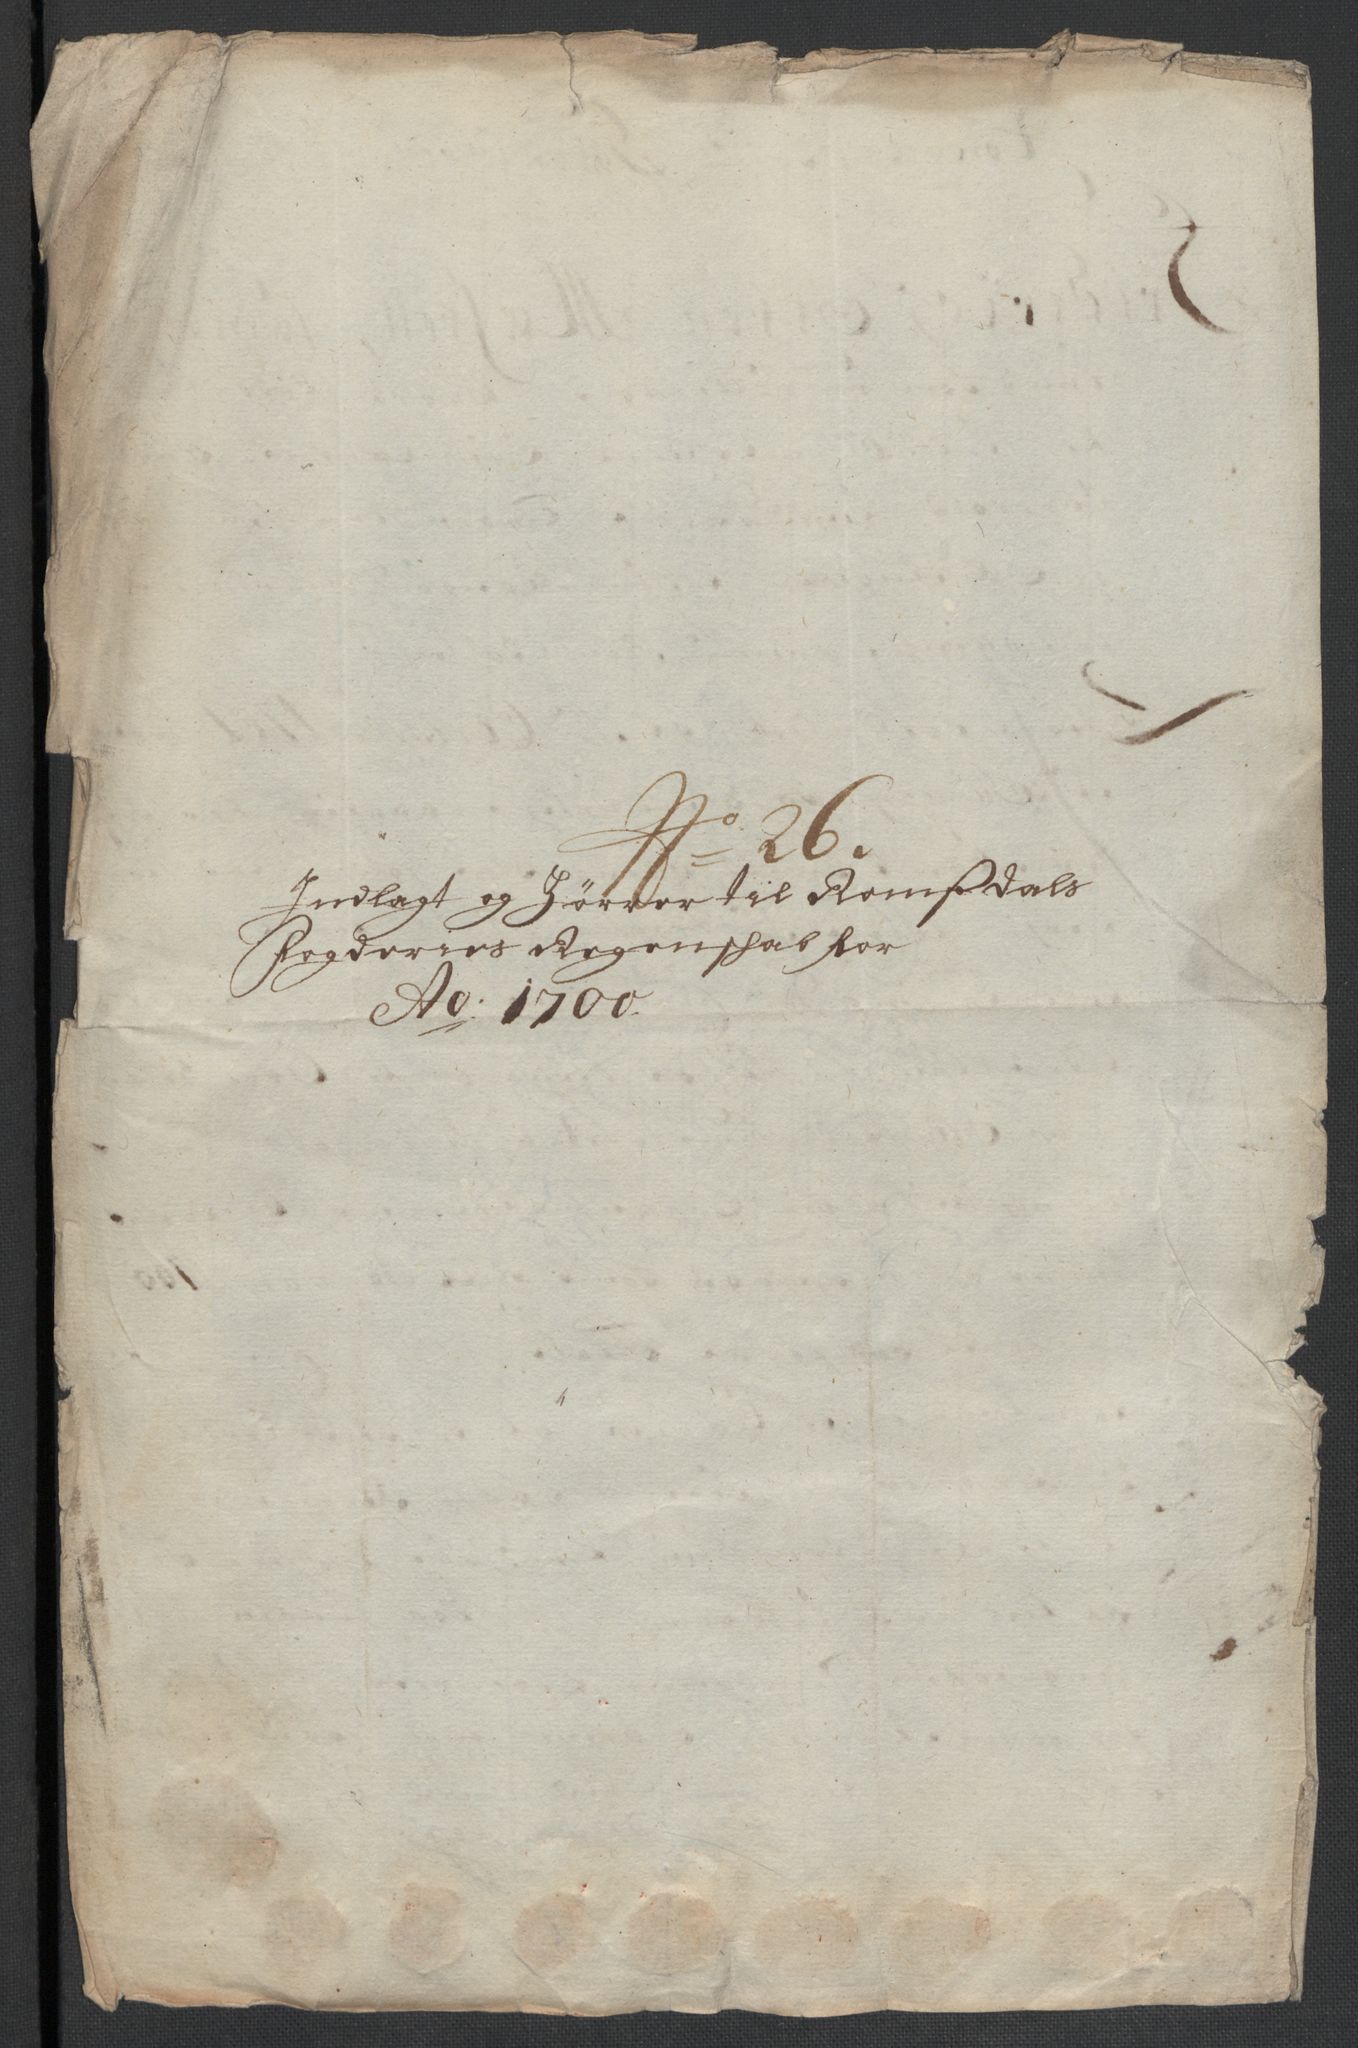 No 26.
Indlagt og Hörrer til Romßdals
Fogderies Regenschab for
Ao. 1700.